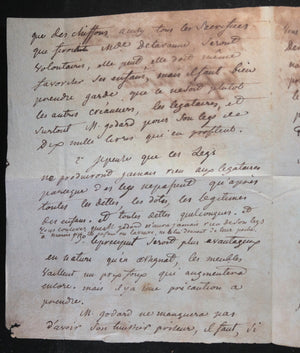 que des chiffons aussi tous les sacrifices
que feroit Mde delavanne seront
volontaires, elle peut elle doit même
favoriser ses enfans, mais il faut bien
prendre garde que ce ne soit plutôt
les autres créanciers, les legataires, et
surtout M. godard pour son legs de
dix mille livres qui en profitent.
je pense que ces legs
ne produiront jamais rien aux legataires
parceque des legs ne payent qu'après
toutes les dettes, les dots, les legitimes
des enfans. Et toutes dettes quelconques. et
Vous concevez que M. godard n'aura jamais rien de son legs
le preciput seront plus avantageux
en nature qu'en assignat, les meubles
vaillent un prix foux qui augmentera
encore. mais il y a une précaution a
prendre.
M. godard ne manquera pas
d'avoir son huissier priseur, il faut, si